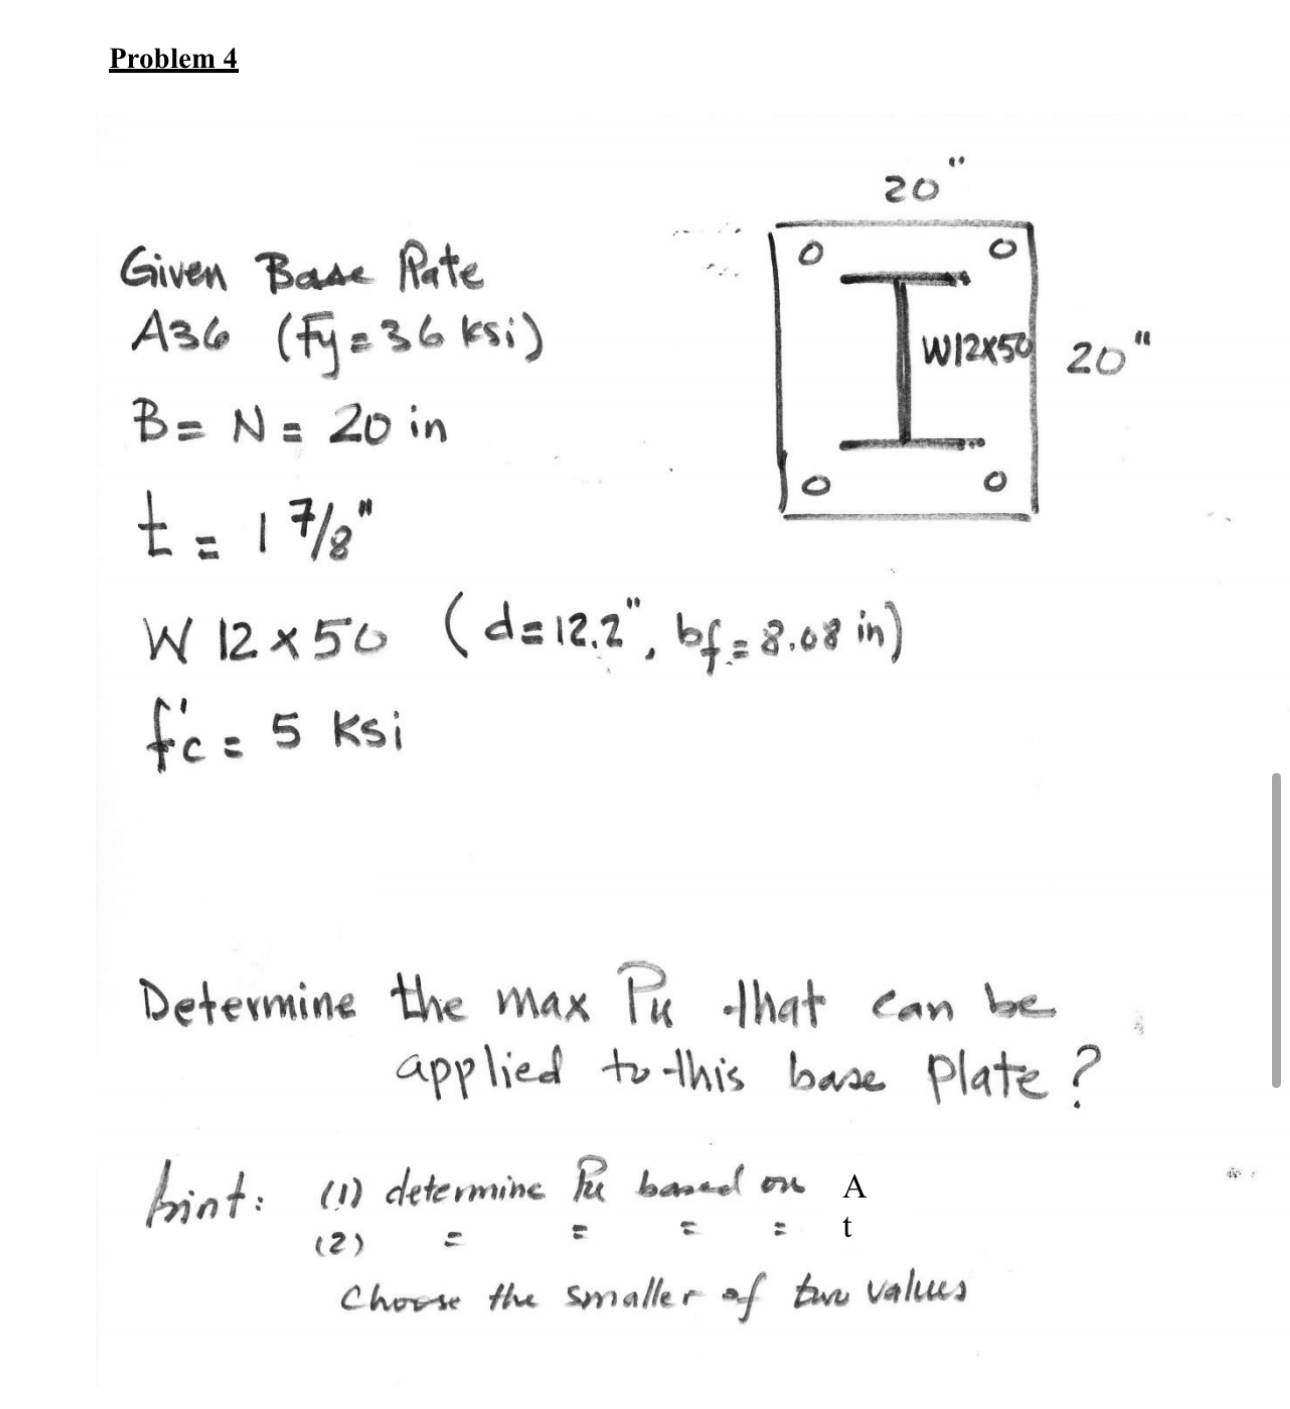 Problem 4
20"
Given Base Plate
A36 (Fy = 36 ksi)
W12x50
20"
B = N = 20 in
t = 1 7/8"
W 12 x 50 (d = 12.2", bf = 8.08 in)
f'c = 5 ksi
Determine the max Pu that can be
applied to this base plate?
hint: (1) determine Pu based on A
(2) = = = = t
Choose the smaller of two values